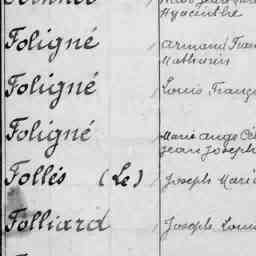 Hyacinthe
Foligné Armand Fran
Mathurin
Foligné Louis Franç
Foligné Marie Ange Cé
Jean Joseph
Follés (Le) Joseph Mari
Folliard Joseph Loui